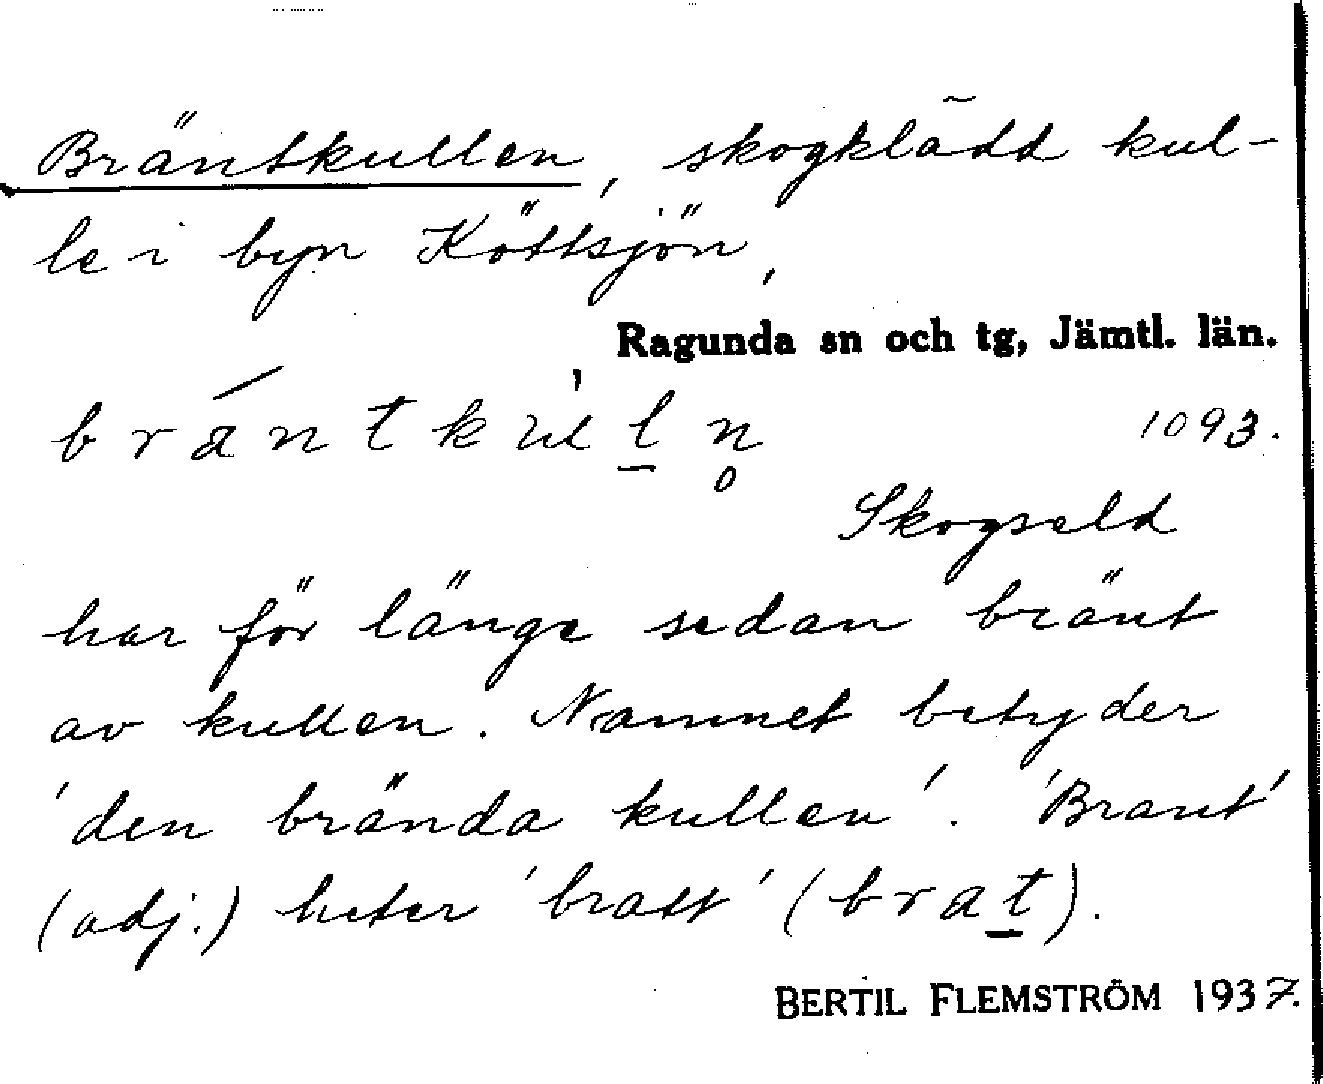 Bräntkullen, skogklädd kul-
le i byn Köttsjön,
Ragunda sn och tg, Jämtl. län.
bräntkul̠n̥
1093.
Skogseld
har för länge sedan bränt
av kullen. Namnet betyder
'den brända kullen'. 'Brant'
(adj.) heter 'bratt' (brat̠).
BERTIL FLEMSTRÖM 1937.